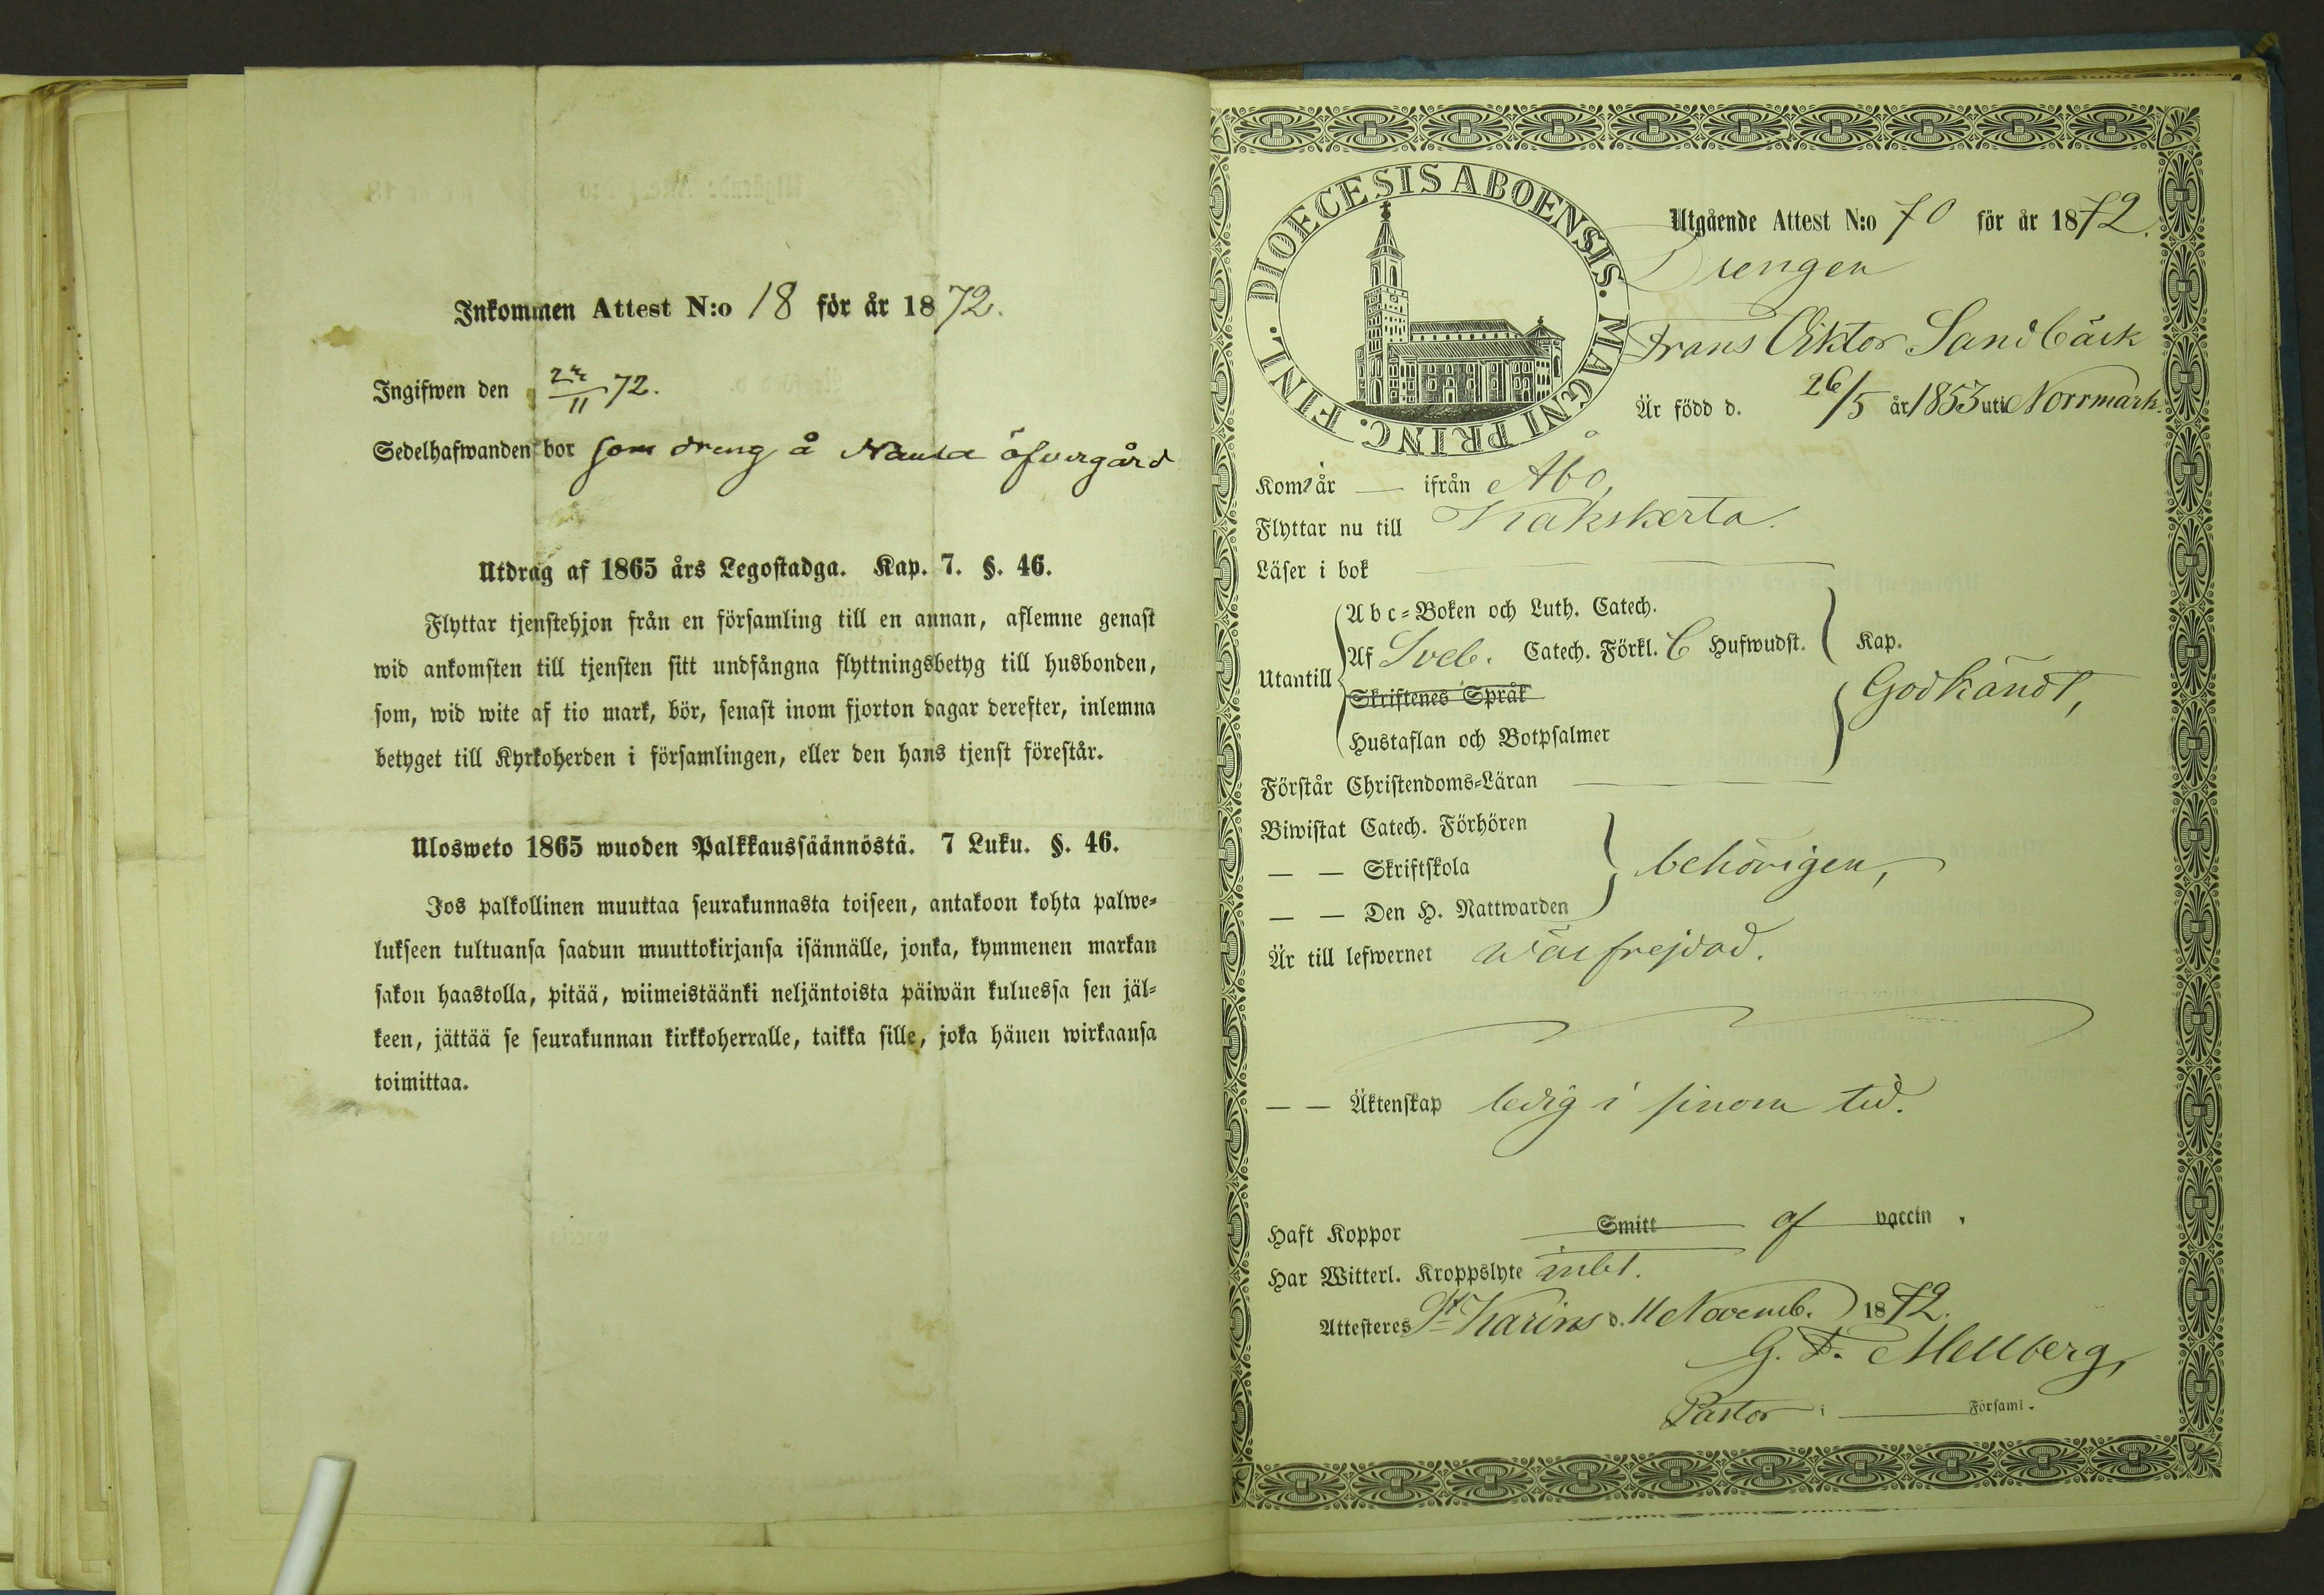 Inkommen Attest N:o 18 för år 1872.
Ingifwen den /11 72.
Sedelhafwanden bor som dreng å Nausa öfvergård
Utdrag af 1865 års Legostadga. Kap. 7. §. 46.
Flyttar tjenstehjon från en församling till en annan, aflemne genast
wid ankomsten till tjensten sitt undfångna flyttningsbetyg till husbonden,
som, wid wite af tio mark, bör, senast inom fjorton dagar derefter, inlemna
betyget till Kyrkoherden i församlingen, eller den hans tjenst förestår.
Ulosweto 1865 wuoden Palkkaussäännöstä. 7 Luku. §. 46.
Jos palkollinen muuttaa seurakunnasta toiseen, antakoon kohta palwe-
lukseen tultuansa saadun muuttokirjansa isännälle, jonka, kymmenen markan
sakon haastolla, pitää, wiimeistäänki neljäntoista päiwän kuluessa sen jäl-
keen, jättää se seurakunnan kirkkoherralle, taikka sille, joka hänen wirkaansa
toimittaa.
DIOECESIS ABOENSIS. MAGNI PRINC. FINL.
Utgående Attest N:o 70 för år 1872.
Drengen
Frans Viktor Sandbäck
Är född d. 26/5 år 1853 uti Norrmark.
Kom år — ifrån Åbo,
Flyttar nu till Kakskerta.
Läser i bok
Utantill
Abc-Boken och Luth. Catech.
Af Sveb. Catech. Förkl. 6 Hufwudst. Kap.
Skriftenes Språk
Godkändt,
Hustaflan och Botpsalmer
Förstår Christendoms-Läran
Biwistat Catech. Förhören
— — Skriftskola behörigen,
— — Den H. Nattwarden
Är till lefwernet välfrejdad.
— — Äktenskap ledig i sinom tid.
Haft Koppor Smitt af vaccin.
Har Witterl. Kroppslyte intet.
Attesteres St Karins d. 11 Novemb. 1872.
G. F. Mellberg,
Pastor i Församl.